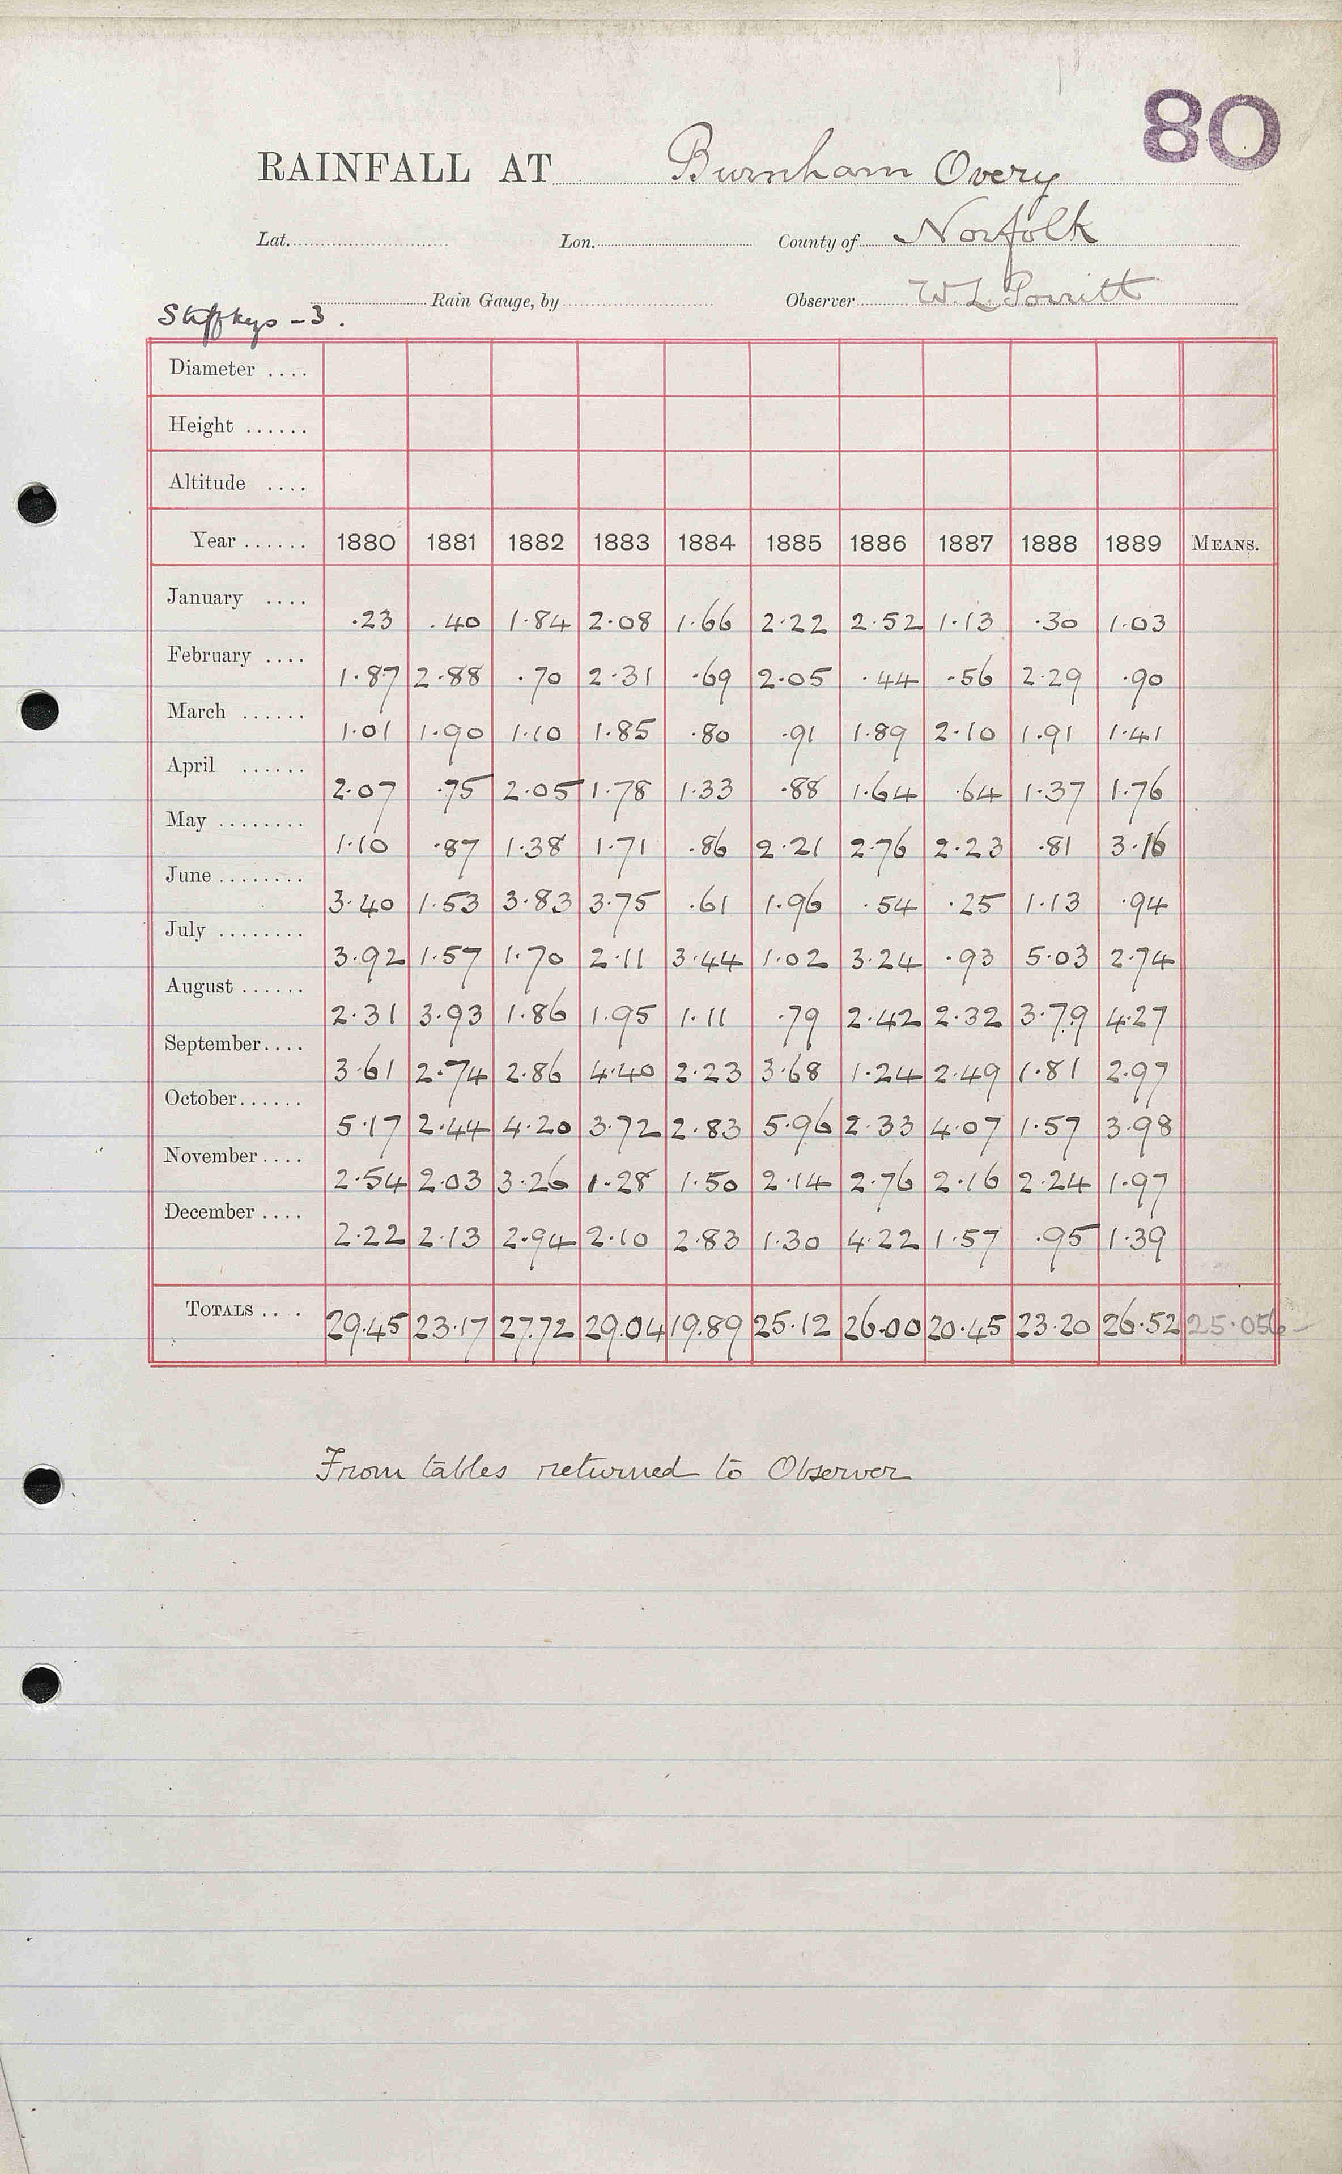 80
RAINFALL AT Burnham Overy
Lat. Lon. County of Norfolk
Rain Gauge, by Observer W. L. Porritt
- 3.
Diameter ....
Height ......
Altitude ....
Year ...... 1880 1881 1882 1883 1884 1885 1886 1887 1888 1889 MEANS.
January .... .23 .40 1.84 2.08 1.66 2.22 2.52 1.13 .30 1.03
February .... 1.87 2.88 .70 2.31 .69 2.05 .44 .56 2.29 .90
March ...... 1.01 1.90 1.10 1.85 .80 .91 1.89 2.10 1.91 1.41
April ...... 2.07 .75 2.05 1.78 1.33 .88 1.64 .64 1.37 1.76
May ........ 1.10 .87 1.38 1.71 .86 2.21 2.76 2.23 .81 3.16
June ........ 3.40 1.53 3.83 3.75 .61 1.96 .54 .25 1.13 .94
July ........ 3.92 1.57 1.70 2.11 3.44 1.02 3.24 .93 5.03 2.74
August ...... 2.31 3.93 1.86 1.95 1.11 .79 2.42 2.32 3.79 4.27
September.... 3.61 2.74 2.86 4.40 2.23 3.68 1.24 2.49 1.81 2.97
October...... 5.17 2.44 4.20 3.72 2.83 5.96 2.33 4.07 1.57 3.98
November .... 2.54 2.03 3.26 1.28 1.50 2.14 2.76 2.16 2.24 1.97
December .... 2.22 2.13 2.94 2.10 2.83 1.30 4.22 1.57 .95 1.39
TOTALS .. . 29.45 23.17 27.72 29.04 19.89 25.12 26.00 20.45 23.20 26.52 25.056
From tables returned to Observer